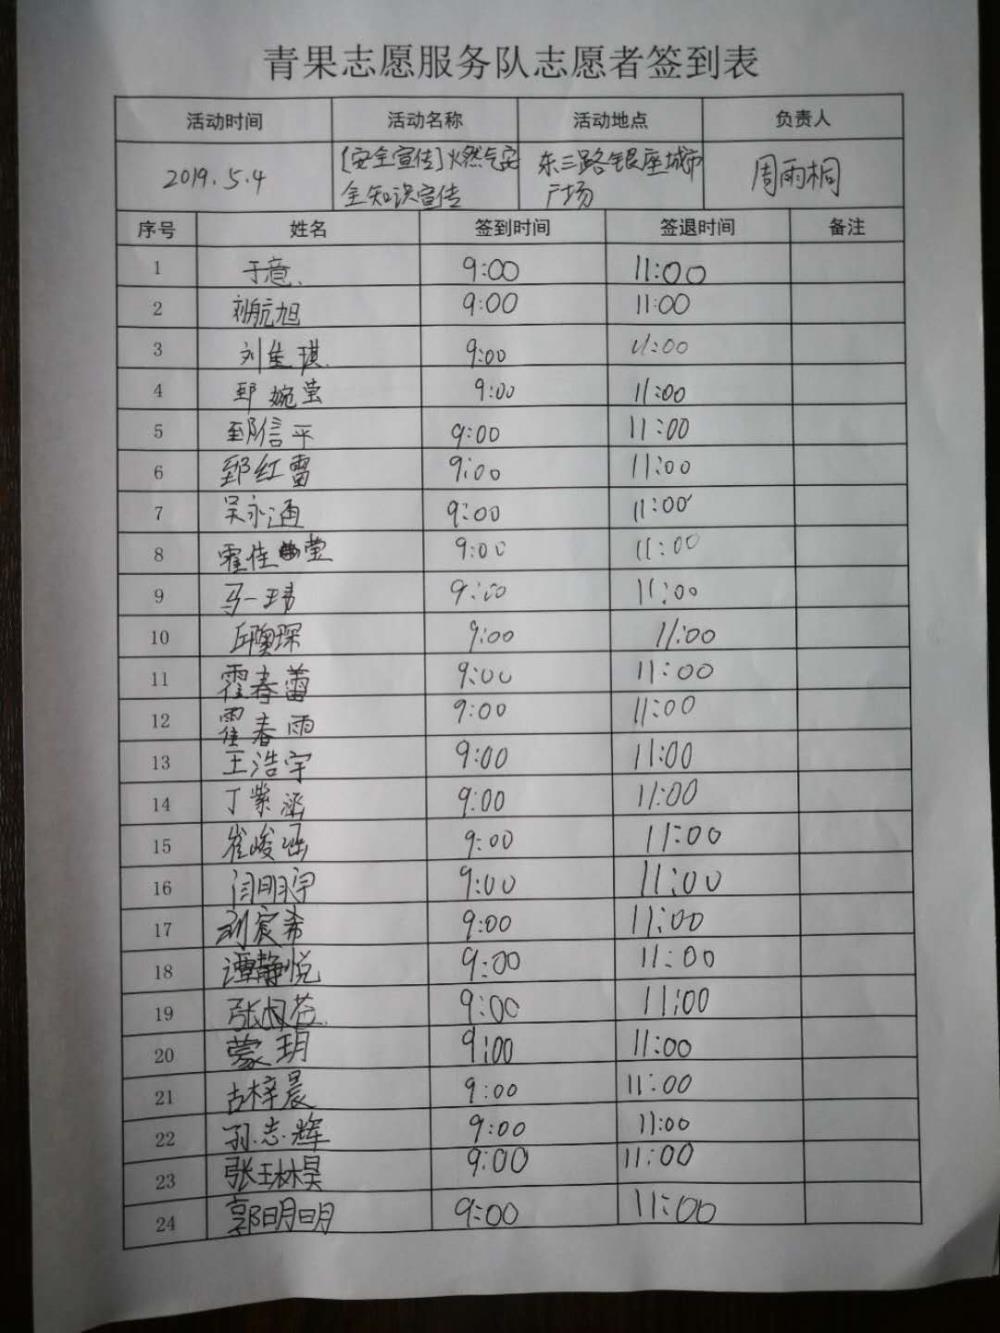 青果志愿服务队志愿者签到表
活动时间 活动名称 活动地点 负责人
2019.5.4 [安全宣传]火燃气安全知识宣传 东三路银座城市广场 周雨桐
序号 姓名 签到时间 签退时间 备注
1 于意 9:00 11:00
2 刘航旭 9:00 11:00
3 刘隹琪 9:00 11:00
4 郅婉莹 9:00 11:00
5 郅信平 9:00 11:00
6 郅红雷 9:00 11:00
7 吴永通 9:00 11:00
8 霍佳莹 9:00 11:00
9 马一玮 9:00 11:00
10 邱琛 9:00 11:00
11 霍春蕾 9:00 11:00
12 霍春雨 9:00 11:00
13 王浩宇 9:00 11:00
14 丁紫涵 9:00 11:00
15 崔峻函 9:00 11:00
16 闫明宇 9:00 11:00
17 刘宸希 9:00 11:00
18 谭静悦 9:00 11:00
19 张 9:00 11:00
20 蒙玥 9:00 11:00
21 古梓晨 9:00 11:00
22 孙志辉 9:00 11:00
23 张琳昊 9:00 11:00
24 郭明明 9:00 11:00